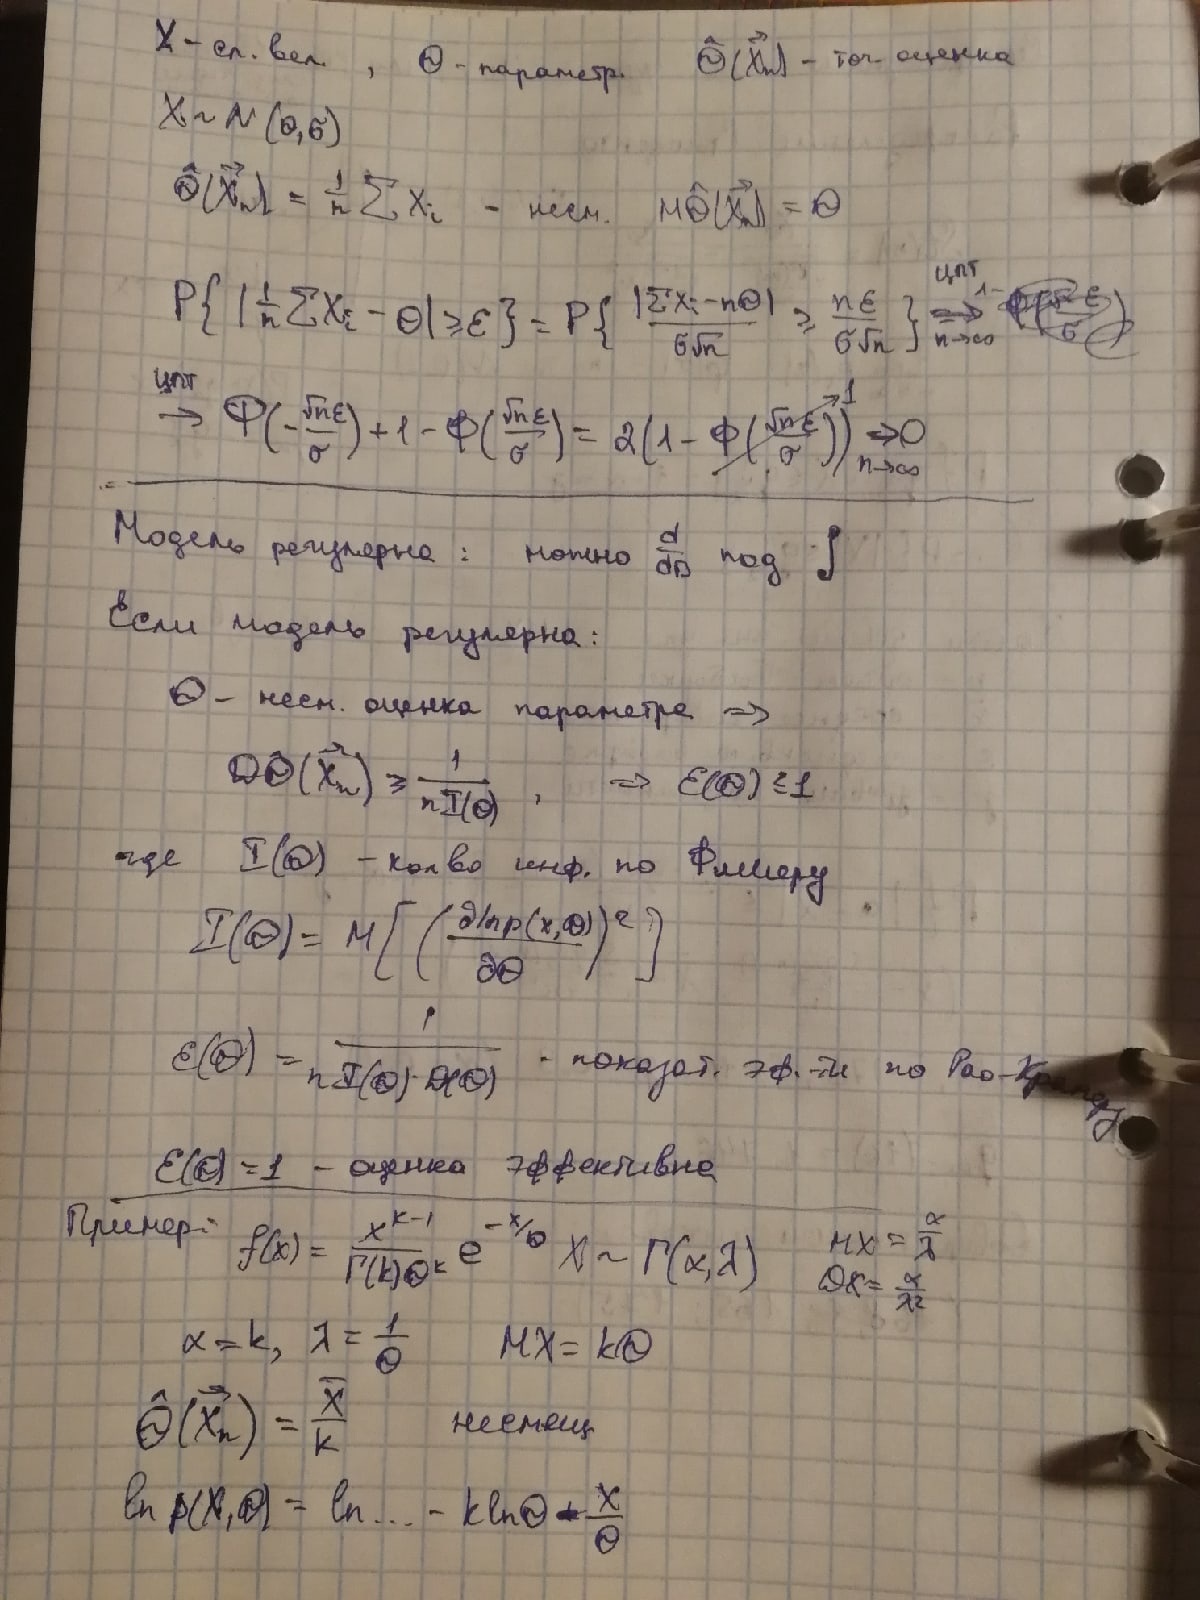 X - сл. вел. , Θ - параметр. Θ̂(X⃗n) - точ. оценка
X ~ N(Θ, σ)
Θ̂(X⃗n) = 1/n ∑ Xi - несм. MΘ̂(X⃗n) = Θ
P{ |1/n ∑Xi - Θ| ≥ ε } = P{ |∑Xi - nΘ| / σ√n ≥ nε / σ√n } ЦПТ ⇒ n→∞
ЦПТ → Φ(-√nε/σ) + 1 - Φ(√nε/σ) = 2(1 - Φ(√nε/σ)→1) → 0 n→∞
Модель регулярна: можно d/dΘ под ∫
Если модель регулярна:
Θ - несм. оценка параметра ⇒
DΘ̂(X⃗n) ≥ 1/nI(Θ) , ⇒ ε(Θ) ≤ 1
где I(Θ) - кол-во инф. по Фишеру
I(Θ) = M[(∂lnp(x,Θ)/∂Θ)²]
ε(Θ) = 1/nI(Θ)·D(Θ) - показат. эф-ти по Рао-Крамеру
ε(Θ) = 1 - оценка эффективна
Пример: f(x) = x^(k-1)/Γ(k)Θ^k e^(-x/Θ) X ~ Γ(α,λ) MX = α/λ
DX = α/λ²
α = k, λ = 1/Θ MX = kΘ
Θ̂(X⃗n) = X̄/k несмещ
ln p(X,Θ) = ln... - klnΘ - X/Θ